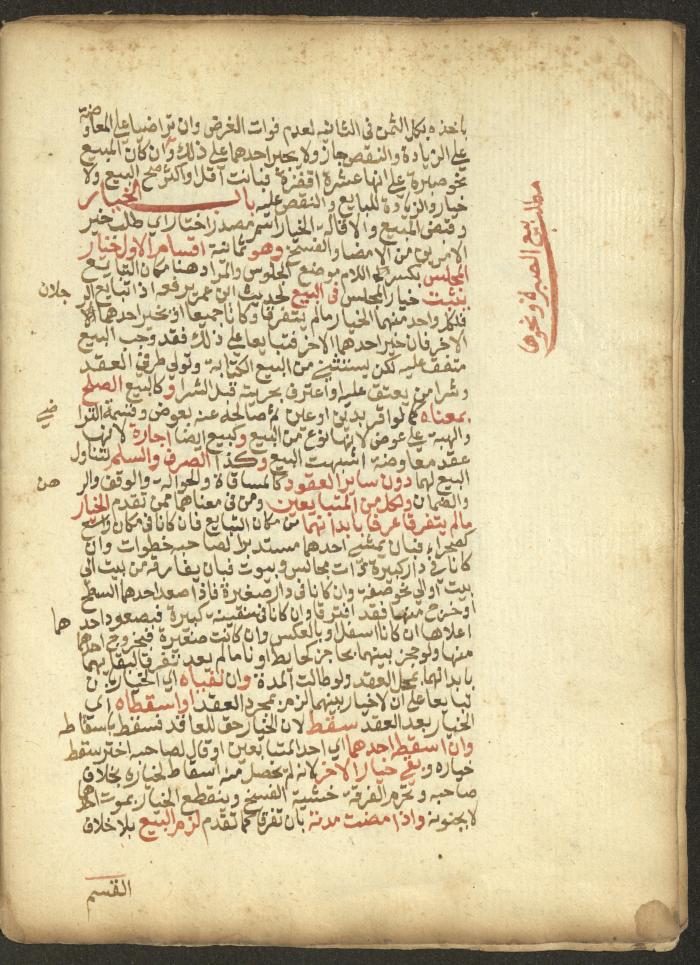 ياخذه بكل الثمن في الثانيه لعدم فوات الغرض وان تراضيا على المعاوضة
على الزيادة والنقص جاز ولا يجبر احدهما على ذلك وان كان المبيع
نحو صبرة على انها عشرة اقفزة فبانت اقل او اكثر صح البيع ولا
خيار والزيادة للبايع والنقص عليه باب الخيار
وقبض المبيع والاقالة الخيار اسم مصدر اختار اي طلب خير
الامرين من الامضا والفسخ وهو ثمانية اقسام الاول خيار
المجلس بكسر اللام موضع الجلوس والمراد هنا مكان التبايع
يثبت خيار المجلس في البيع لحديث ابن عمر يرفعه اذا تبايع الرجلان
فكل واحد منهما الخيار مالم يتفرقا وكانا جميعا او يخير احدهما الا
الاخر فان خير احدهما الاخر فتبايعا على ذلك فقد وجب البيع
متفق عليه لكن يستثنى من البيع الكتابة وتولي طرفي العقد
وشرا من يعتق عليه او اعترف بحريته قبل الشرا وكالبيع الصلح
بمعناه كما لو اقر بدين او عين ثم صالحه عنه بعوض وقسمة التراضي
والهبة على عوض لانها نوع من البيع وكبيع ايضا اجارة لانها
عقد معاوضة اشبهت البيع وكذا الصرف والسلم لتناول
البيع لهما دون ساير العقود كالمساقاة والحوالة والوقف والرهن
والضمان ولكل من المتبايعين ومن في معناهما ممن تقدم الخيار
مالم يتفرقا عرفا بابدانهما من مكان التبايع فان كانا في مكان واسع
كصحراء فبان يمشي احدهما مستدبرا لصاحبه خطوات وان
كانا في دار كبيرة ذات مجالس وبيوت فبان يفارقه من بيت الى
بيت او الى نحو صفة وان كانا في دار صغيرة فاذا صعد احدهما السطح
او خرج منها فقد افترقا وان كانا في سفينة كبيرة فبصعود احدهما
اعلاها ان كانا اسفل وبالعكس وان كانت صغيرة فبخروج احدهما
منها ولو حجز بينهما بحاجز كحايط او ناما لم يعد تفرقا لبقائهما
بابدانهما بمحل العقد ولو طالت المدة وان نفياه اي الخيار بان
تبايعا على ان لا خيار بينهما لزم بمجرد العقد او اسقطاه اي
الخيار بعد العقد سقط لان الخيار حق للعاقد فسقط باسقاطه
وان اسقط احدهما اي احد المتبايعين او قال لصاحبه اختر سقط
خياره وبقي خيار الاخر لانه لم يحصل منه اسقاط لخياره بخلاف
صاحبه وتحرم الفرقة خشية الفسخ وينقطع الخيار بموت احدهما
لا بجنونه واذا مضت مدته بان تفرقا كما تقدم لزم البيع بلا خلاف
القسم
مطلب بيع الصبرة ونحوها